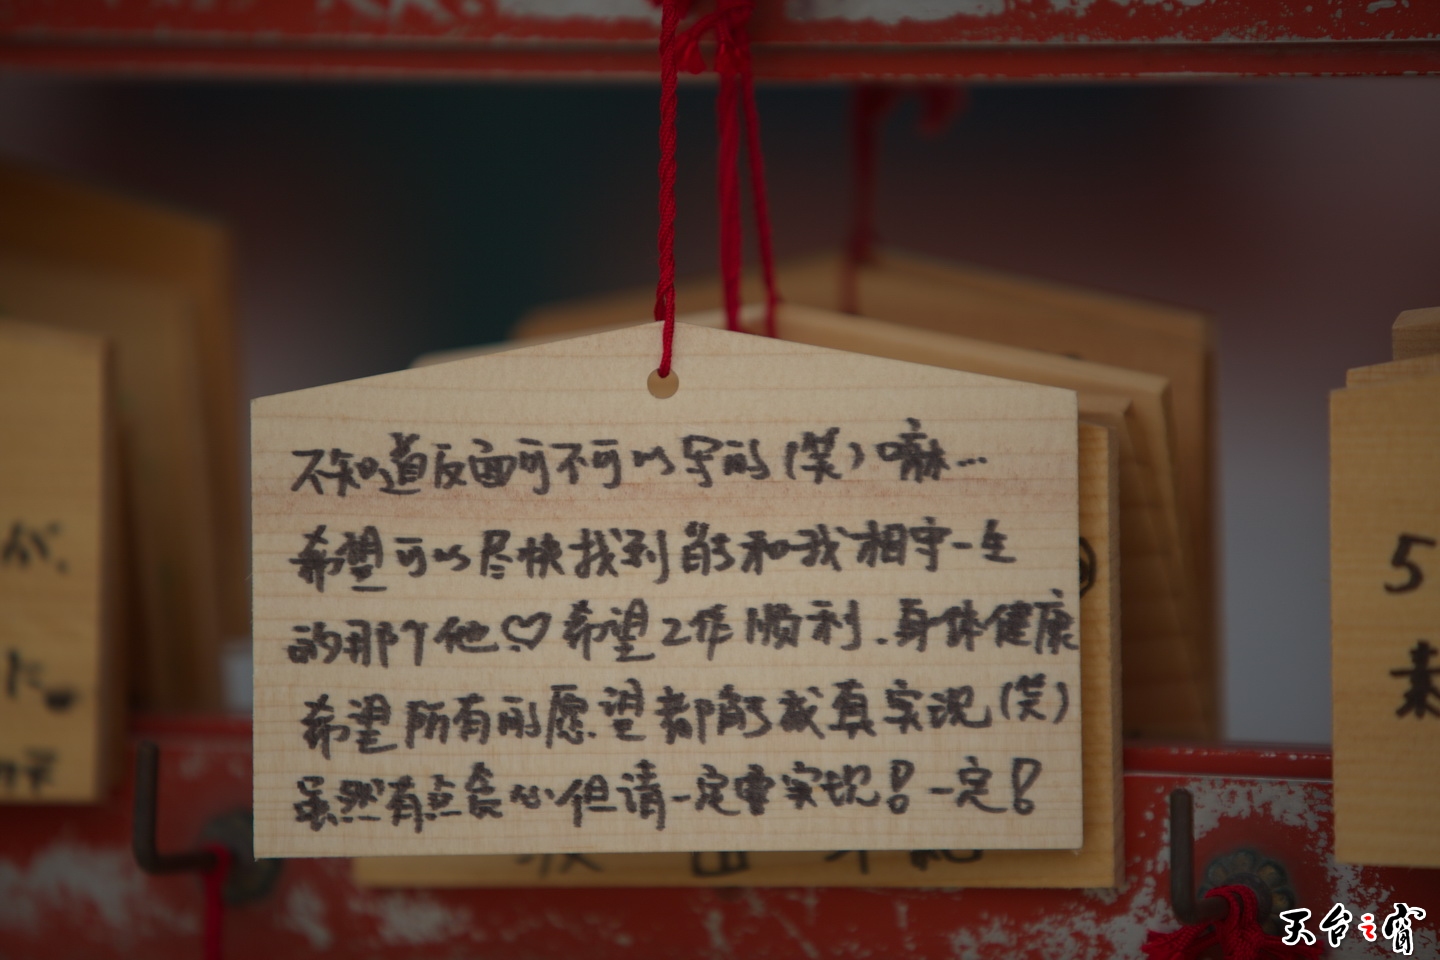 不知道反面可不可以写的(笑)嘛...
希望可以尽快找到能和我相守一生
的那个他♡希望工作顺利.身体健康
希望所有的愿望都能成真实现(笑)
虽然有点贪心但请一定要实现!一定!
代
た
5
来
天台之宵